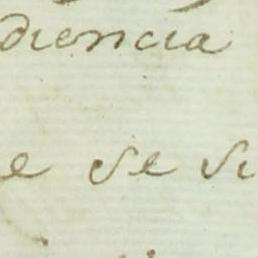 diencia
e se si